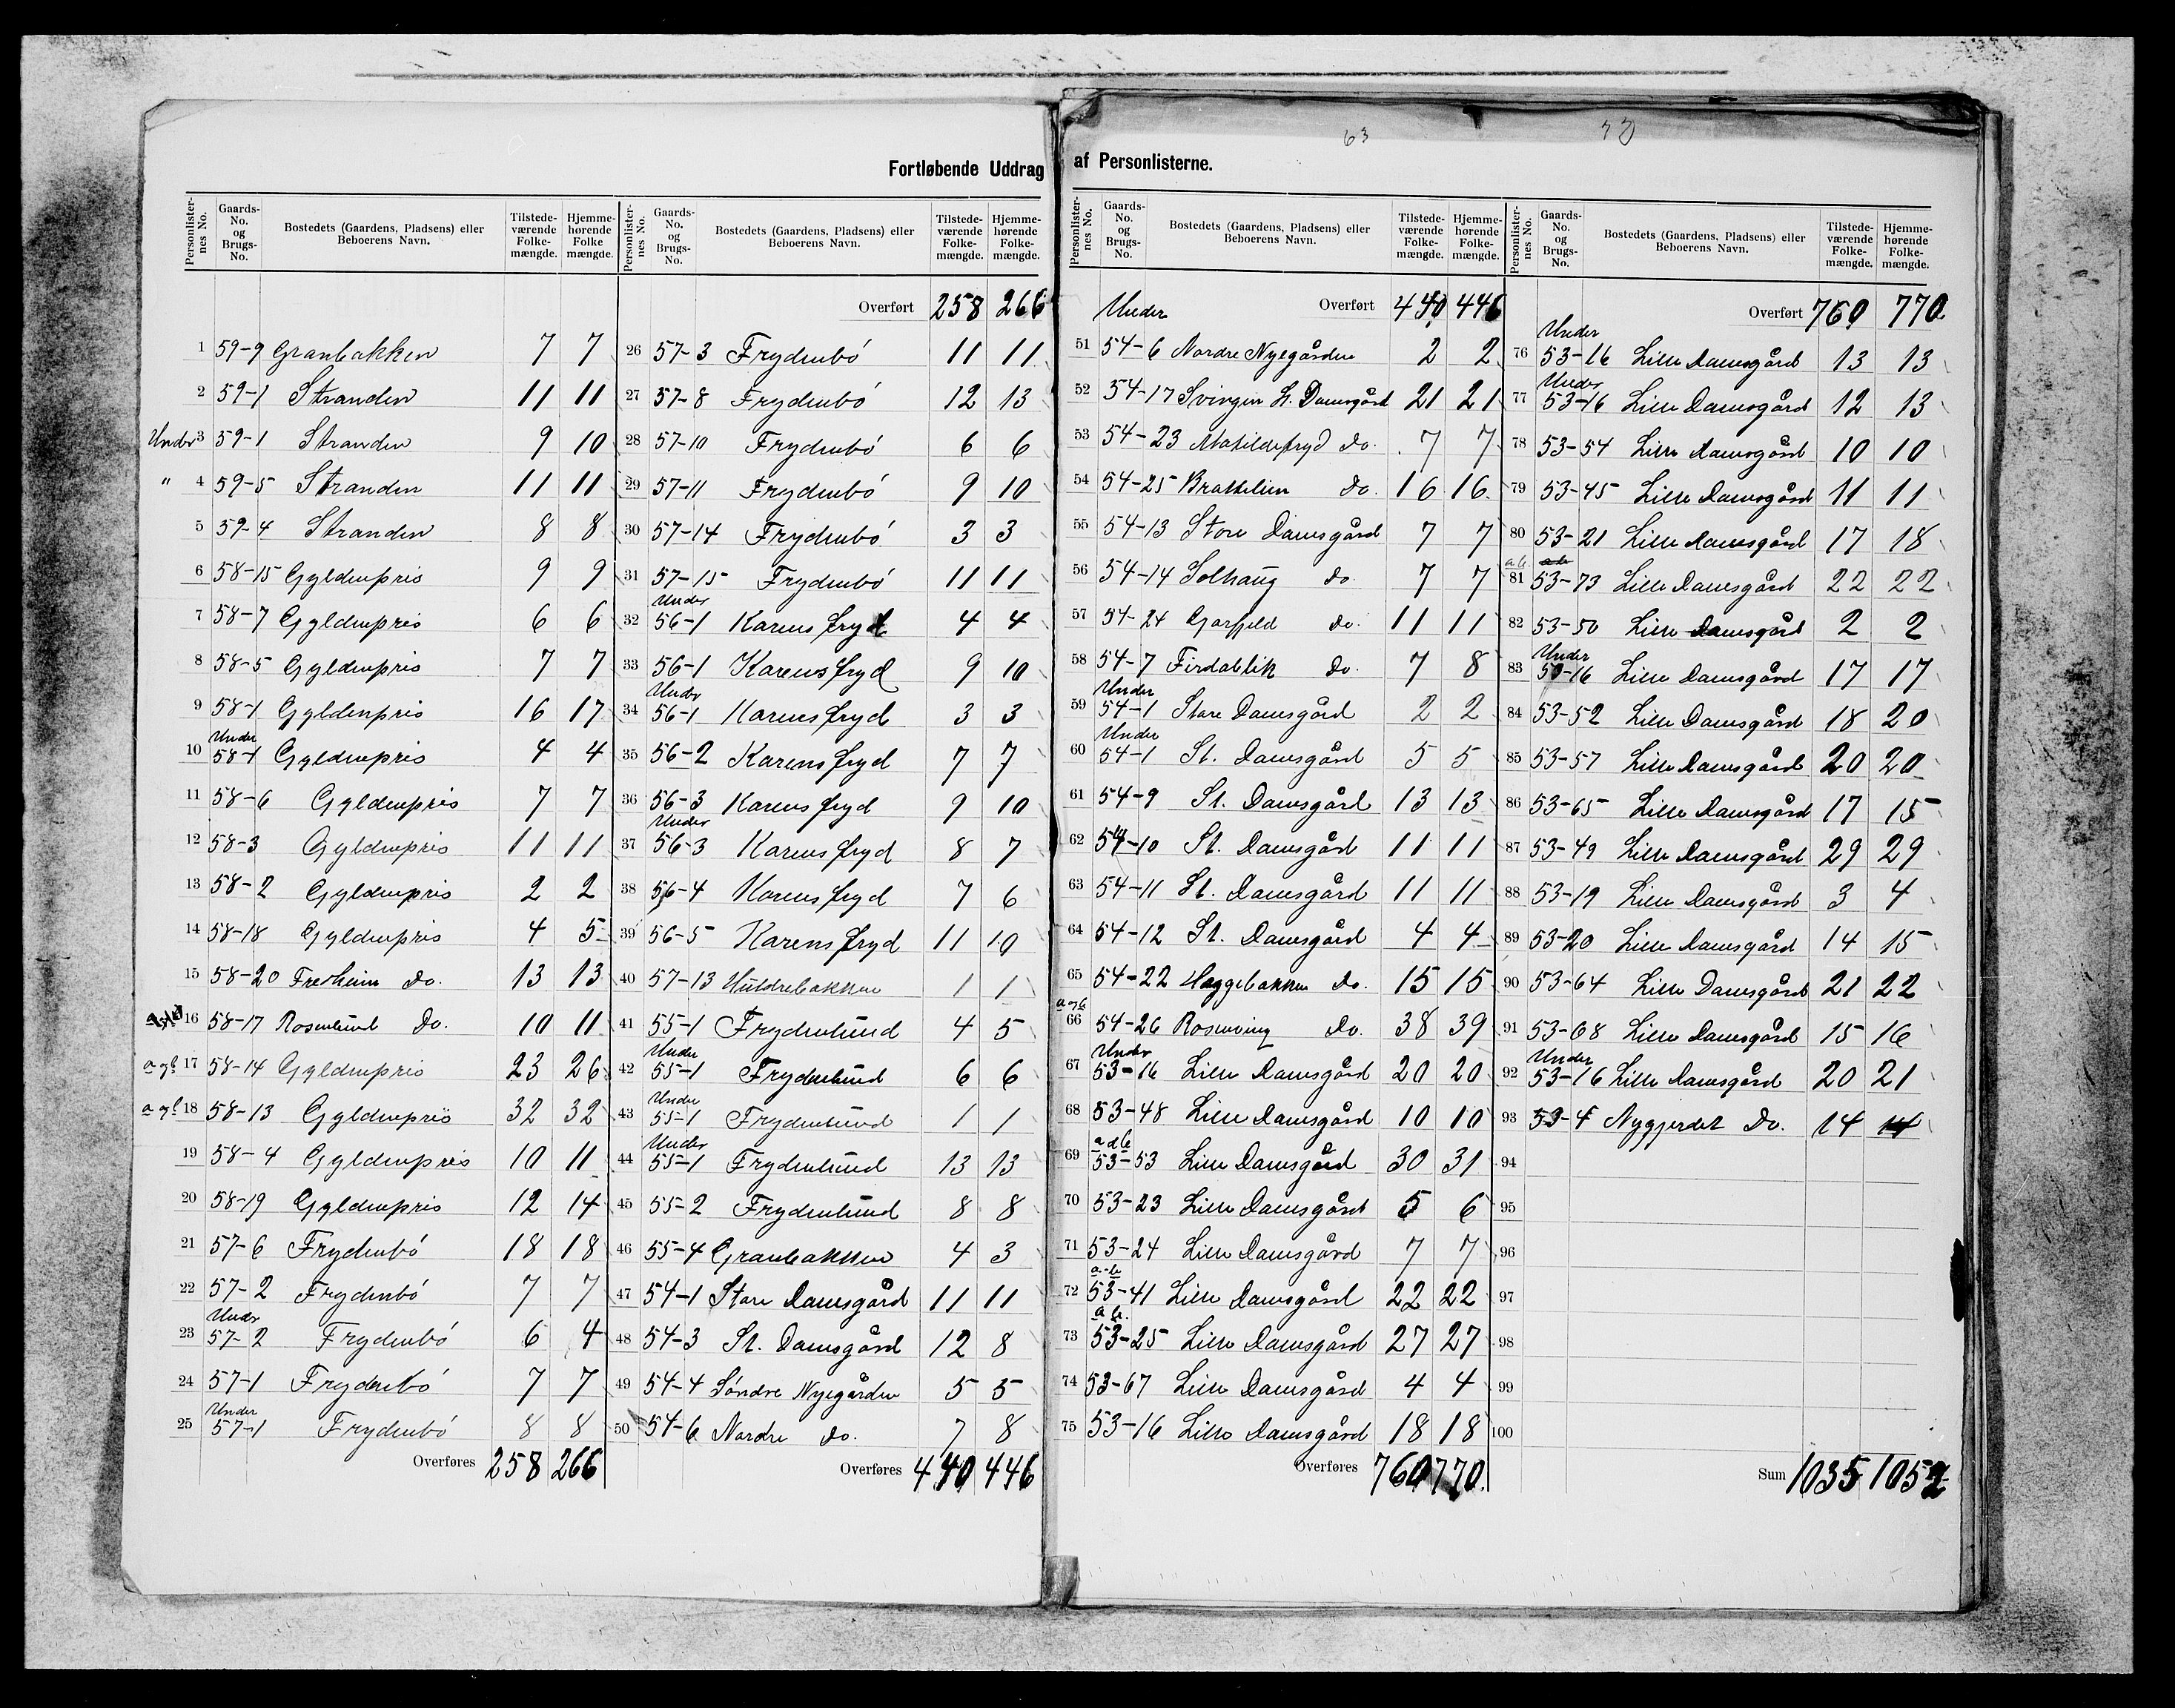 63
Fortløbende Uddrag af Personlisterne.
Personlisternes No. Gaards-No. og Brugs-No. Bostedets (Gaardens, Pladsens) eller Beboerens Navn. Tilstedeværende Folkemængde. Hjemmehørende Folkemængde.
1 59-9 Granbakken 7 7
2 59-1 Stranden 11 11
Under 3 59-1 Stranden 9 10
" 4 59-5 Stranden 11 11
5 59-4 Stranden 8 8
6 58-15 Gyldenpris 9 9
7 58-7 Gyldenpris 6 6
8 58-5 Gyldenpris 7 7
9 58-1 Gyldenpris 16 17
Under
10 58-1 Gyldenpris 4 4
11 58-6 Gyldenpris 7 7
12 58-3 Gyldenpris 11 11
13 58-2 Gyldenpris 2 2
14 58-18 Gyldenpris 4 5
15 58-20 Fredheim Do. 13 13
16 58-17 Rosenlund Do. 10 11
a og b 17 58-14 Gyldenpris 23 26
a og b 18 58-13 Gyldenpris 32 32
19 58-4 Gyldenpris 10 11
20 58-19 Gyldenpris 12 14
21 57-6 Frydenbö 18 18
22 57-2 Frydenbö 7 7
Under
23 57-2 Frydenbö 6 4
24 57-1 Frydenbö 7 7
Under
25 57-1 Frydenbö 8 8
Overføres 258 266
Personlisternes No. Gaards-No. og Brugs-No. Bostedets (Gaardens, Pladsens) eller Beboerens Navn. Tilstedeværende Folkemængde. Hjemmehørende Folkemængde.
Overført 258 266
26 57-3 Frydenbö 11 11
27 57-8 Frydenbö 12 13
28 57-10 Frydenbö 6 6
29 57-11 Frydenbö 9 10
30 57-14 Frydenbö 3 3
31 57-15 Frydenbö 11 11
Under
32 56-1 Karensfryd 4 4
33 56-1 Karensfryd 9 10
Under
34 56-1 Karensfryd 3 3
35 56-2 Karensfryd 7 7
36 56-3 Karensfryd 9 10
Under
37 56-3 Karensfryd 8 7
38 56-4 Karensfryd 7 6
39 56-5 Karensfryd 11 10
40 57-13 Huldrebakken 1 1
41 55-1 Frydenlund 4 5
Under
42 55-1 Frydenlund 6 6
Under
43 55-1 Frydenlund 1 1
Under
44 55-1 Frydenlund 13 13
45 55-2 Frydenlund 8 8
46 55-4 Granbakken 4 3
47 54-1 Store Damsgård 11 11
48 54-3 St. Damsgård 12 8
49 54-4 Söndre Nyegården 5 5
50 54-6 Nordre do. 7 8
Overføres 440 446
Personlisternes No. Gaards-No. og Brugs-No. Bostedets (Gaardens, Pladsens) eller Beboerens Navn. Tilstedeværende Folkemængde. Hjemmehørende Folkemængde.
Under Overført 440 446
51 54-6 Nordre Nyegården 2 2
52 54-17 Svingen St. Damsgård 21 21
53 54-23 Matildefryd do. 7 7
54 54-25 Brattelien do. 16 16
55 54-13 Store Damsgård 7 7
56 54-14 Solhaug do. 7 7
57 54-24 Garfjeld do. 11 11
58 54-7 Firdablik do. 7 8
Under
59 54-1 Store Damsgård 2 2
Under
60 54-1 St. Damsgård 5 5
61 54-9 St. Damsgård 13 13
62 54-10 St. Damsgård 11 11
63 54-11 St. Damsgård 11 11
64 54-12 St. Damsgård 4 4
65 54-22 Haggebakken do. 15 15
a og b
66 54-26 Do. 38 39
Under
67 53-16 Lille Damsgård 20 20
68 53-48 Lille Damsgård 10 10
69 53-53 Lille Damsgård 30 31
70 53-23 Lille Damsgård 5 6
71 53-24 Lille Damsgård 7 7
a-b
72 53-41 Lille Damsgård 22 22
a b.
73 53-25 Lille Damsgård 27 27
74 53-67 Lille Damsgård 4 4
75 53-16 Lille Damsgård 18 18
Overføres 760 770.
Personlisternes No. Gaards-No. og Brugs-No. Bostedets (Gaardens, Pladsens) eller Beboerens Navn. Tilstedeværende Folkemængde. Hjemmehørende Folkemængde.
Overført 760 770
Under
76 53-16 Lille Damsgård 13 13
Under
77 53-16 Lille Damsgård 12 13
78 53-54 Lille Damsgård 10 10
79 53-45 Lille Damsgård 11 11
80 53-21 Lille Damsgård 17 18
a b.
81 53-73 Lille Damsgård 22 22
82 53-50 Lille Damsgård 2 2
Under
83 53-16 Lille Damsgård 17 17
84 53-52 Lille Damsgård 18 20
85 53-57 Lille Damsgård 20 20
86 53-65 Lille Damsgård 17 15
87 53-49 Lille Damsgård 29 29
88 53-19 Lille Damsgård 3 4
89 53-20 Lille Damsgård 14 15
90 53-64 Lille Damsgård 21 22
91 53-68 Lille Damsgård 15 16
Under
92 53-16 Lille Damsgård 20 21
93 53-4 Nygjerdet Do. 14 14
94
95
96
97
98
99
100
Sum 1035 1052